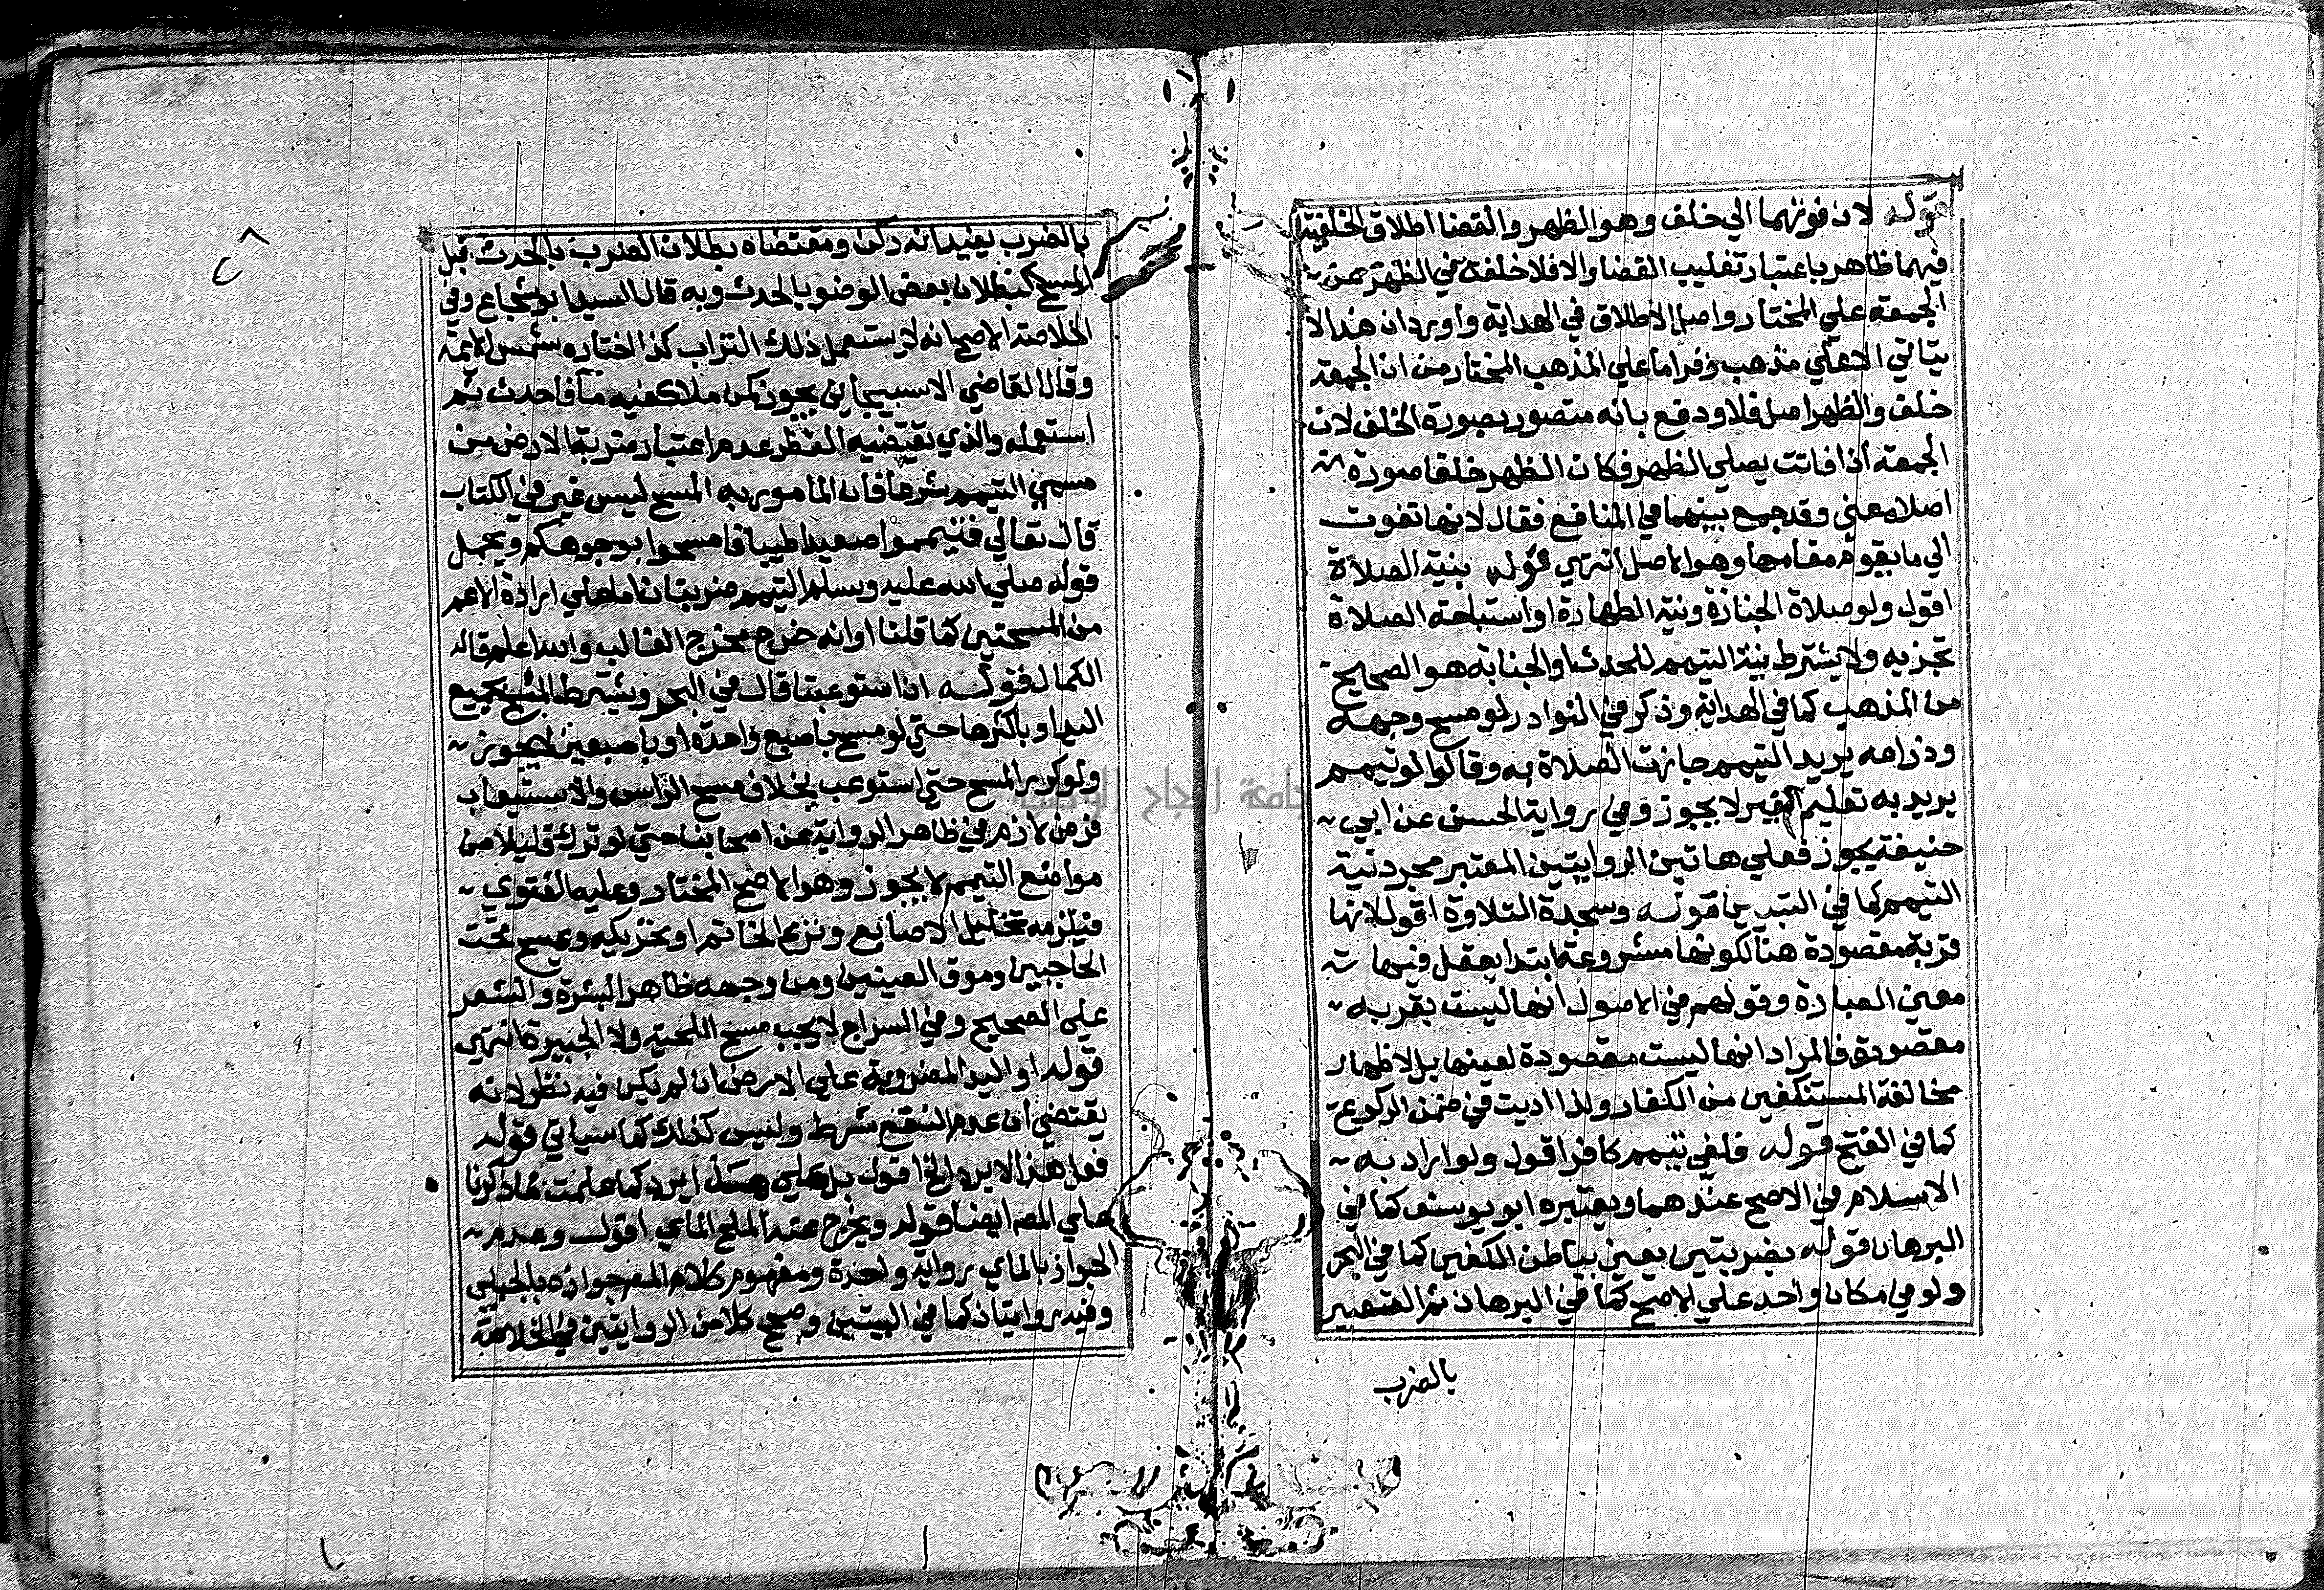 قوله لان فوتهما الي خلف وهو الظهر والقضا اطلاق الخلفية
فيهما ظاهر باعتبار تغليب القضا والا فلا خلفة في الظهر عن
الجمعة علي المختار واصل الاطلاق في الهداية واورد ان هذا لا
يتاتي الا علي مذهب زفر اما علي المذهب المختار من ان الجمعة
خلف والظهر اصل فلا ودفع بانه متصور بصورة الخلف لان
الجمعة اذا فاتت يصلي الظهر فكان الظهر خلفا صورة
اصلا معني وقد جمع بينهما في المنافع فقال لانها تفوت
الي ما يقوم مقامها وهو الاصل انتهي قوله بنية الصلاة
اقول ولو صلاة الجنازة ونية الطهارة او استباحة الصلاة
تجزيه ولا يشترط نية التيمم للحدث او الجنابة هو الصحيح
من المذهب كما في الهداية وذكر في النوادر لو مسح وجهه
وذراعه يريد التيمم جازت الصلاة به وقالوا لو تيمم
يريد به تعليم الغير لا يجوز وفي رواية الحسن عن ابي
حنيفة يجوز فعلي هاتين الروايتين المعتبر مجرد نية
التيمم كما في التبيين قوله وسجدة التلاوة اقول لانها
قربة مقصودة هنا لكونها مشروعة ابتدا يعقل فيها
معني العبادة وقولهم في الاصول انها ليست بقربه
مقصودة فالمراد انها ليست مقصودة لعينها بل لاظهار
مخالفة المستنكفين من الكفار ولذا اديت في ضمن الركوع
كما في الفتح قوله فلغي تيمم كافر اقول ولو اراد به
الاسلام في الاصح عندهما ويعتبره ابو يوسف كما في
البرهان قوله بضربتين يعني بباطن الكفين كما في البحر
ولو في مكان واحد علي الاصح كما في البرهان ثم التعبير
بالضرب
بالضرب يفيد انه ركن ومقتضاه بطلان الضرب بالحدث قبل
المسح كبطلان بعض الوضو بالحدث وبه قال السيد ابو شجاع وفي
الخلاصة الاصح انه لا يستعمل ذلك التراب كذا اختاره شمس الايمة
وقال القاضي الاسبيجابي يجوز كمن ملا كفيه ما فاحدث ثم
استعمله والذي يقتضيه النظر عدم اعتبار ضربة الارض من
مسمي التيمم شرعا فان المامور به المسح ليس غير في الكتاب
قال تعالي فتيمموا صعيدا طيبا فامسحوا بوجوهكم ويحمل
قوله صلي الله عليه وسلم التيمم ضربتان اما علي ارادة الاعم
من المسحتين كما قلنا او انه خرج مخرج الغالب والله اعلم قاله
الكمال قوله ان استوعبتا قال في البحر ويشترط المسح بجميع
اليد او باكثرها حتي لو مسح باصبع واحدة او باصبعين لا يجوز
ولو كرر المسح حتي استوعب بخلاف مسح الراس والاستيعاب
فرض لازم في ظاهر الرواية عن اصحابنا حتي لو ترك قليلا من
مواضع التيمم لا يجوز وهو الاصح المختار وعليه الفتوي
فيلزمه تخليل الاصابع ونزع الخاتم او تحريكه ويمسح تحت
الحاجبين وموق العينين ومن وجهه ظاهر البشرة والشعر
علي الصحيح وفي السراج لا يجب مسح اللحية ولا الجبيرة انتهي
قوله او اليد المضروبة علي الارض ان لم يكن فيه نظر لانه
يقتضي ان عدم النقع شرط وليس كذلك كما سياتي قوله
فعل هذا لا يرد الخ اقول بل علي يرد كما علمت مما ذكرنا
علي المصـ ايضا قوله ويخرج عنه الملح الماي اقول وعدم
الجواز بالماي رواية واحدة ومفهوم كلام المصـ جوازه بالجبلي
وفيه روايتان كما في التبيين وصحح كلا من الروايتين في الخلاصة